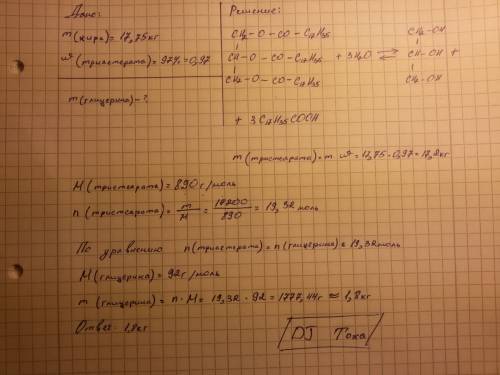 Дано:
m(жира) = 17,75кг
ω(тристеарата) = 97% = 0,97
m(глицерина) - ?
Решение:
CH₂ - O - CO - C₁₇H₃₅
CH - O - CO - C₁₇H₃₅ + 3H₂O ⇄ CH - OH +
CH₂ - O - CO - C₁₇H₃₅
CH₂ - OH
CH₂ - OH
+ 3C₁₇H₃₅COOH
m(тристеарата) = m·ω = 17,75·0,97 = 17,2кг
M(тристеарата) = 890г/моль
n(тристеарата) = m/M = 17200/890 = 19,32моль
По уравнению n(тристеарата) = n(глицерина) = 19,32моль
M(глицерина) = 92г/моль
m(глицерина) = n·M = 19,32·92 = 1777,44г ≈ 1,8кг
Ответ: 1,8кг
DJ Тоха